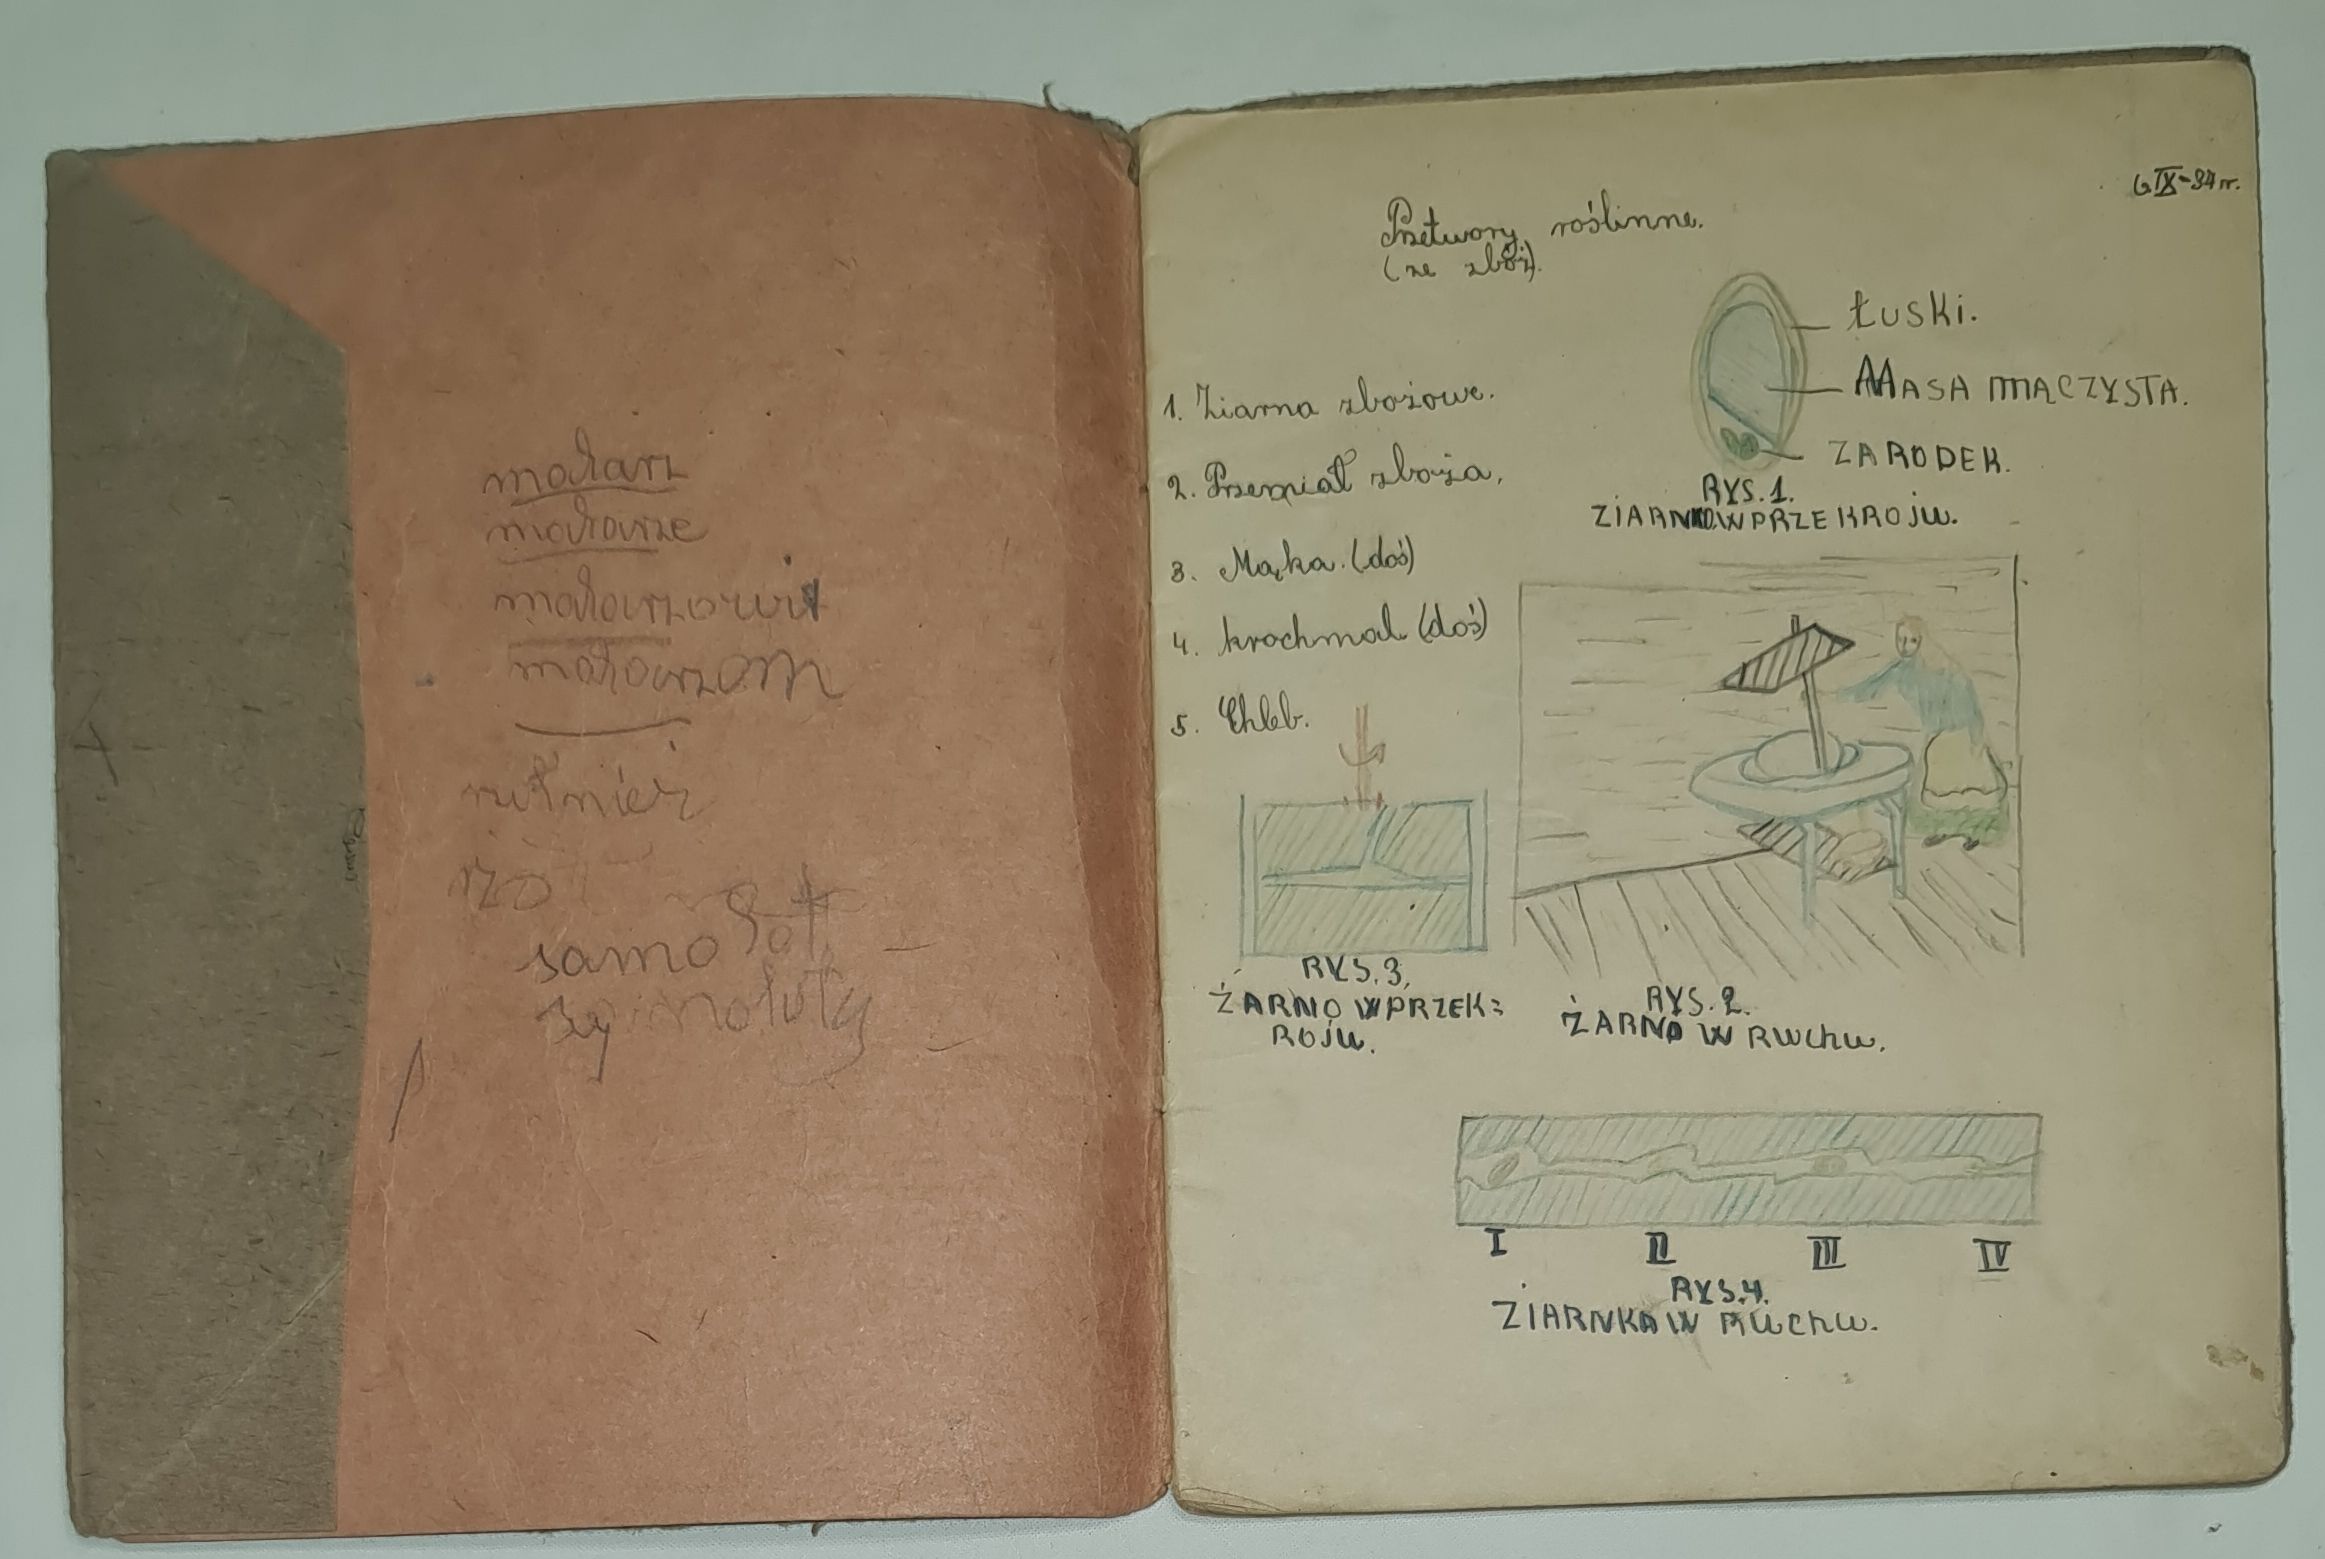 małarz
małarze
małarzowi
małarzom
rz
samolot
samoloty
6 IX-34 r.
Przetwory roślinne.
(ze zbóż).
Łuski.
MASA MĄCZYSTA.
ZARODEK.
RYS. 1.
ZIARNKO W PRZEKROJU.
1. Ziarna zbożowe.
2. Przemiał zboża.
3. Mąka. (doś)
4. krochmal (doś)
5. Chleb.
RYS. 3.
ŻARNO W PRZEK=
ROJU.
RYS. 2.
ŻARNO W RUCHU.
I II III IV
RYS. 4.
ZIARNKA W RUCHU.